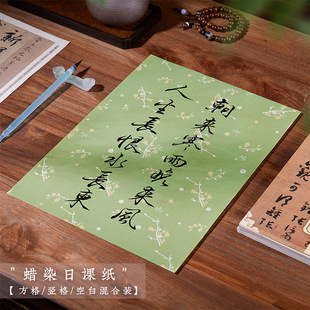 朝来寒雨晚来風
人生長恨水長東
"蜡染日课纸"
【方格/竖格/空白混合装】